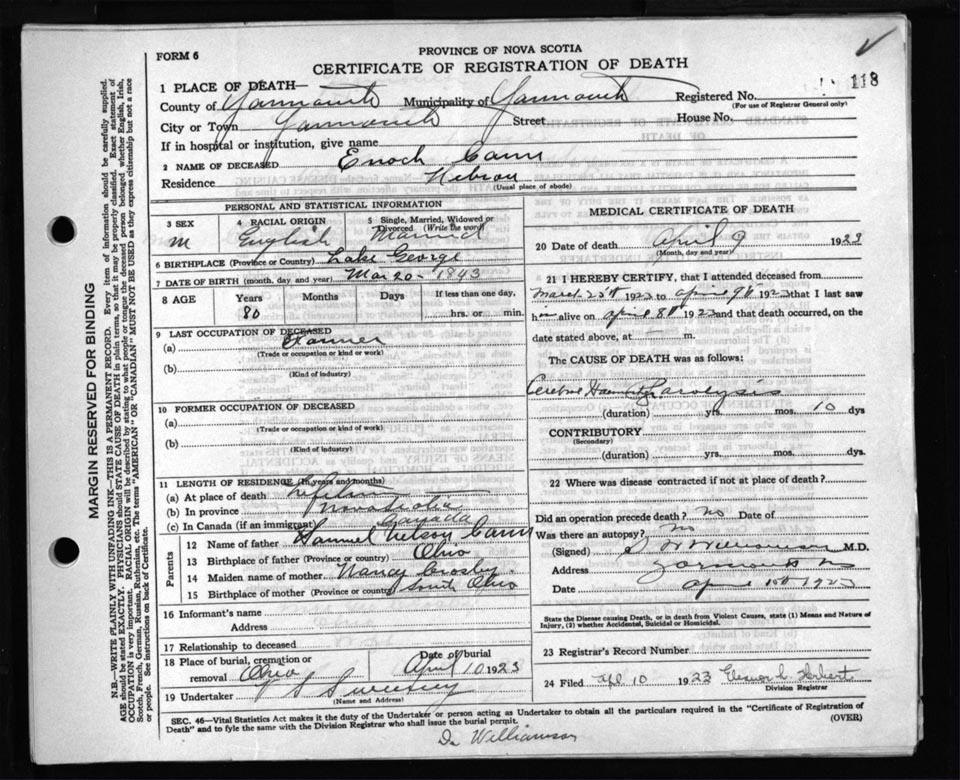 PROVINCE OF NOVA SCOTIA
FORM 6
CERTIFICATE OF REGISTRATION OF DEATH
118
1 PLACE OF DEATH—
County of Yarmouth Municipality of Yarmouth Registered No.
(For use of Registrar General only)
City or Town Yarmouth Street House No.
If in hospital or institution, give name
2 NAME OF DECEASED Enoch Cann
Residence Hebron (Usual place of abode)
PERSONAL AND STATISTICAL INFORMATION
3 SEX M
4 RACIAL ORIGIN English
5 Single, Married, Widowed or Divorced (Write the word) Married
6 BIRTHPLACE (Province or Country) Lake George
7 DATE OF BIRTH (month, day and year) Mar 20 - 1843
8 AGE Years Months Days If less than one day,
80 hrs. or min.
9 LAST OCCUPATION OF DECEASED
(a) Farmer
(Trade or occupation or kind or work)
(b)
(Kind of industry)
10 FORMER OCCUPATION OF DECEASED
(a)
(Trade or occupation or kind of work)
(b)
(Kind of industry)
11 LENGTH OF RESIDENCE (In years and months)
(a) At place of death
(b) In province Nova Scotia
(c) In Canada (if an immigrant) Canada
Parents
12 Name of father Samuel Nelson Cann
13 Birthplace of father (Province or country) Ohio
14 Maiden name of mother Nancy Crosby
15 Birthplace of mother (Province or country) South Ohio
16 Informant's name
Address
17 Relationship to deceased
18 Place of burial, cremation or removal Ohio
Date of burial April 10 1923
19 Undertaker S Sweeney
(Name and Address)
MEDICAL CERTIFICATE OF DEATH
20 Date of death April 9 1923
(Month, day and year)
21 I HEREBY CERTIFY, that I attended deceased from
March 25th 1923 to April 9th 1923 that I last saw
him alive on April 8th 1923 and that death occurred, on the
date stated above, at m.
The CAUSE OF DEATH was as follows:
Cerebral Paralysis
(duration) yrs. mos. 10 dys
CONTRIBUTORY
(Secondary)
(duration) yrs. mos. dys.
22 Where was disease contracted if not at place of death?
Did an operation precede death? No Date of
Was there an autopsy? No
(Signed) M.D.
Address Yarmouth NS
Date April 10th 1923
State the Disease causing Death, or in death from Violent Causes, state (1) Means and Nature of
Injury, (2) whether Accidental, Suicidal or Homicidal.
23 Registrar's Record Number
24 Filed Apl 10 1923 Herbert
Division Registrar
SEC. 46—Vital Statistics Act makes it the duty of the Undertaker or person acting as Undertaker to obtain all the particulars required in the "Certificate of Registration of
Death" and to fyle the same with the Division Registrar who shall issue the burial permit. (OVER)
Dr Williamson
MARGIN RESERVED FOR BINDING
N.B.—WRITE PLAINLY WITH UNFADING INK—THIS IS A PERMANENT RECORD. Every item of information should be carefully supplied.
AGE should be stated EXACTLY. PHYSICIANS should STATE CAUSE OF DEATH in plain terms, so that it may be properly classified. Exact statement of
OCCUPATION is very important. RACIAL ORIGIN will be described by stating to what people or tongue the deceased person belonged whether English, Irish,
Scotch, French, German, Russian, Ruthenian, etc. The terms "AMERICAN" OR "CANADIAN" MUST NOT BE USED as they express citizenship but not a race
or people. See instructions on back of Certificate.